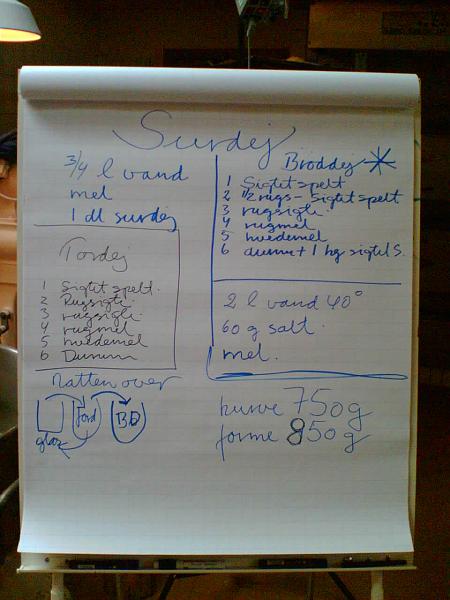 Surdej
3/4 l vand
mel
1 dl surdej
Fordej
1 Sigtet spelt.
2 Rugsigti.
3 rugsigti.
4 rugmel
5 hvedemel
6 Durum
Natten over
glas
Ford
BD
Broddej *
1 Sigtet spelt
2 1/2 rugs - Sigtet spelt
3 rugsigti.
4 rugmel
5 hvedemel
6 durum + 1 kg sigtet S.
2 l vand 40°
60 g salt.
mel.
kurve 750g
forme 850g